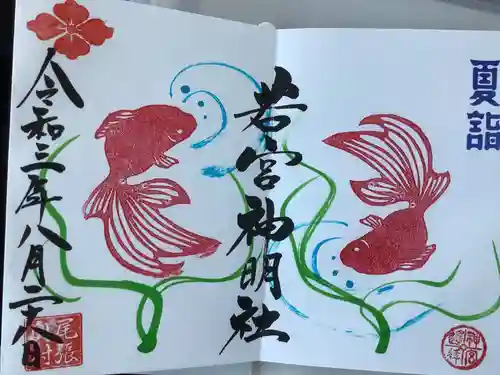 夏詣
若宮神明社
令和三年八月二十八日
尾張